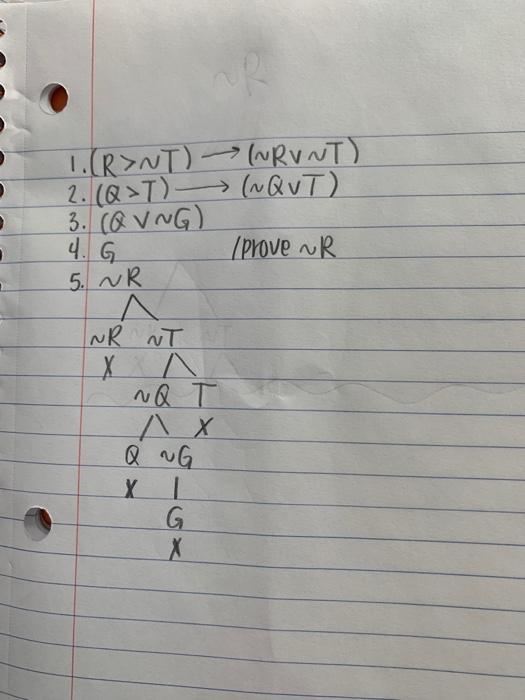 ~R
1. (R>~T) → (~RV~T)
2. (Q>T) → (~QVT)
3. (QV~G)
4. G /prove ~R
5. ~R
~R ~T
X
~Q T
X
Q ~G
X
G
X